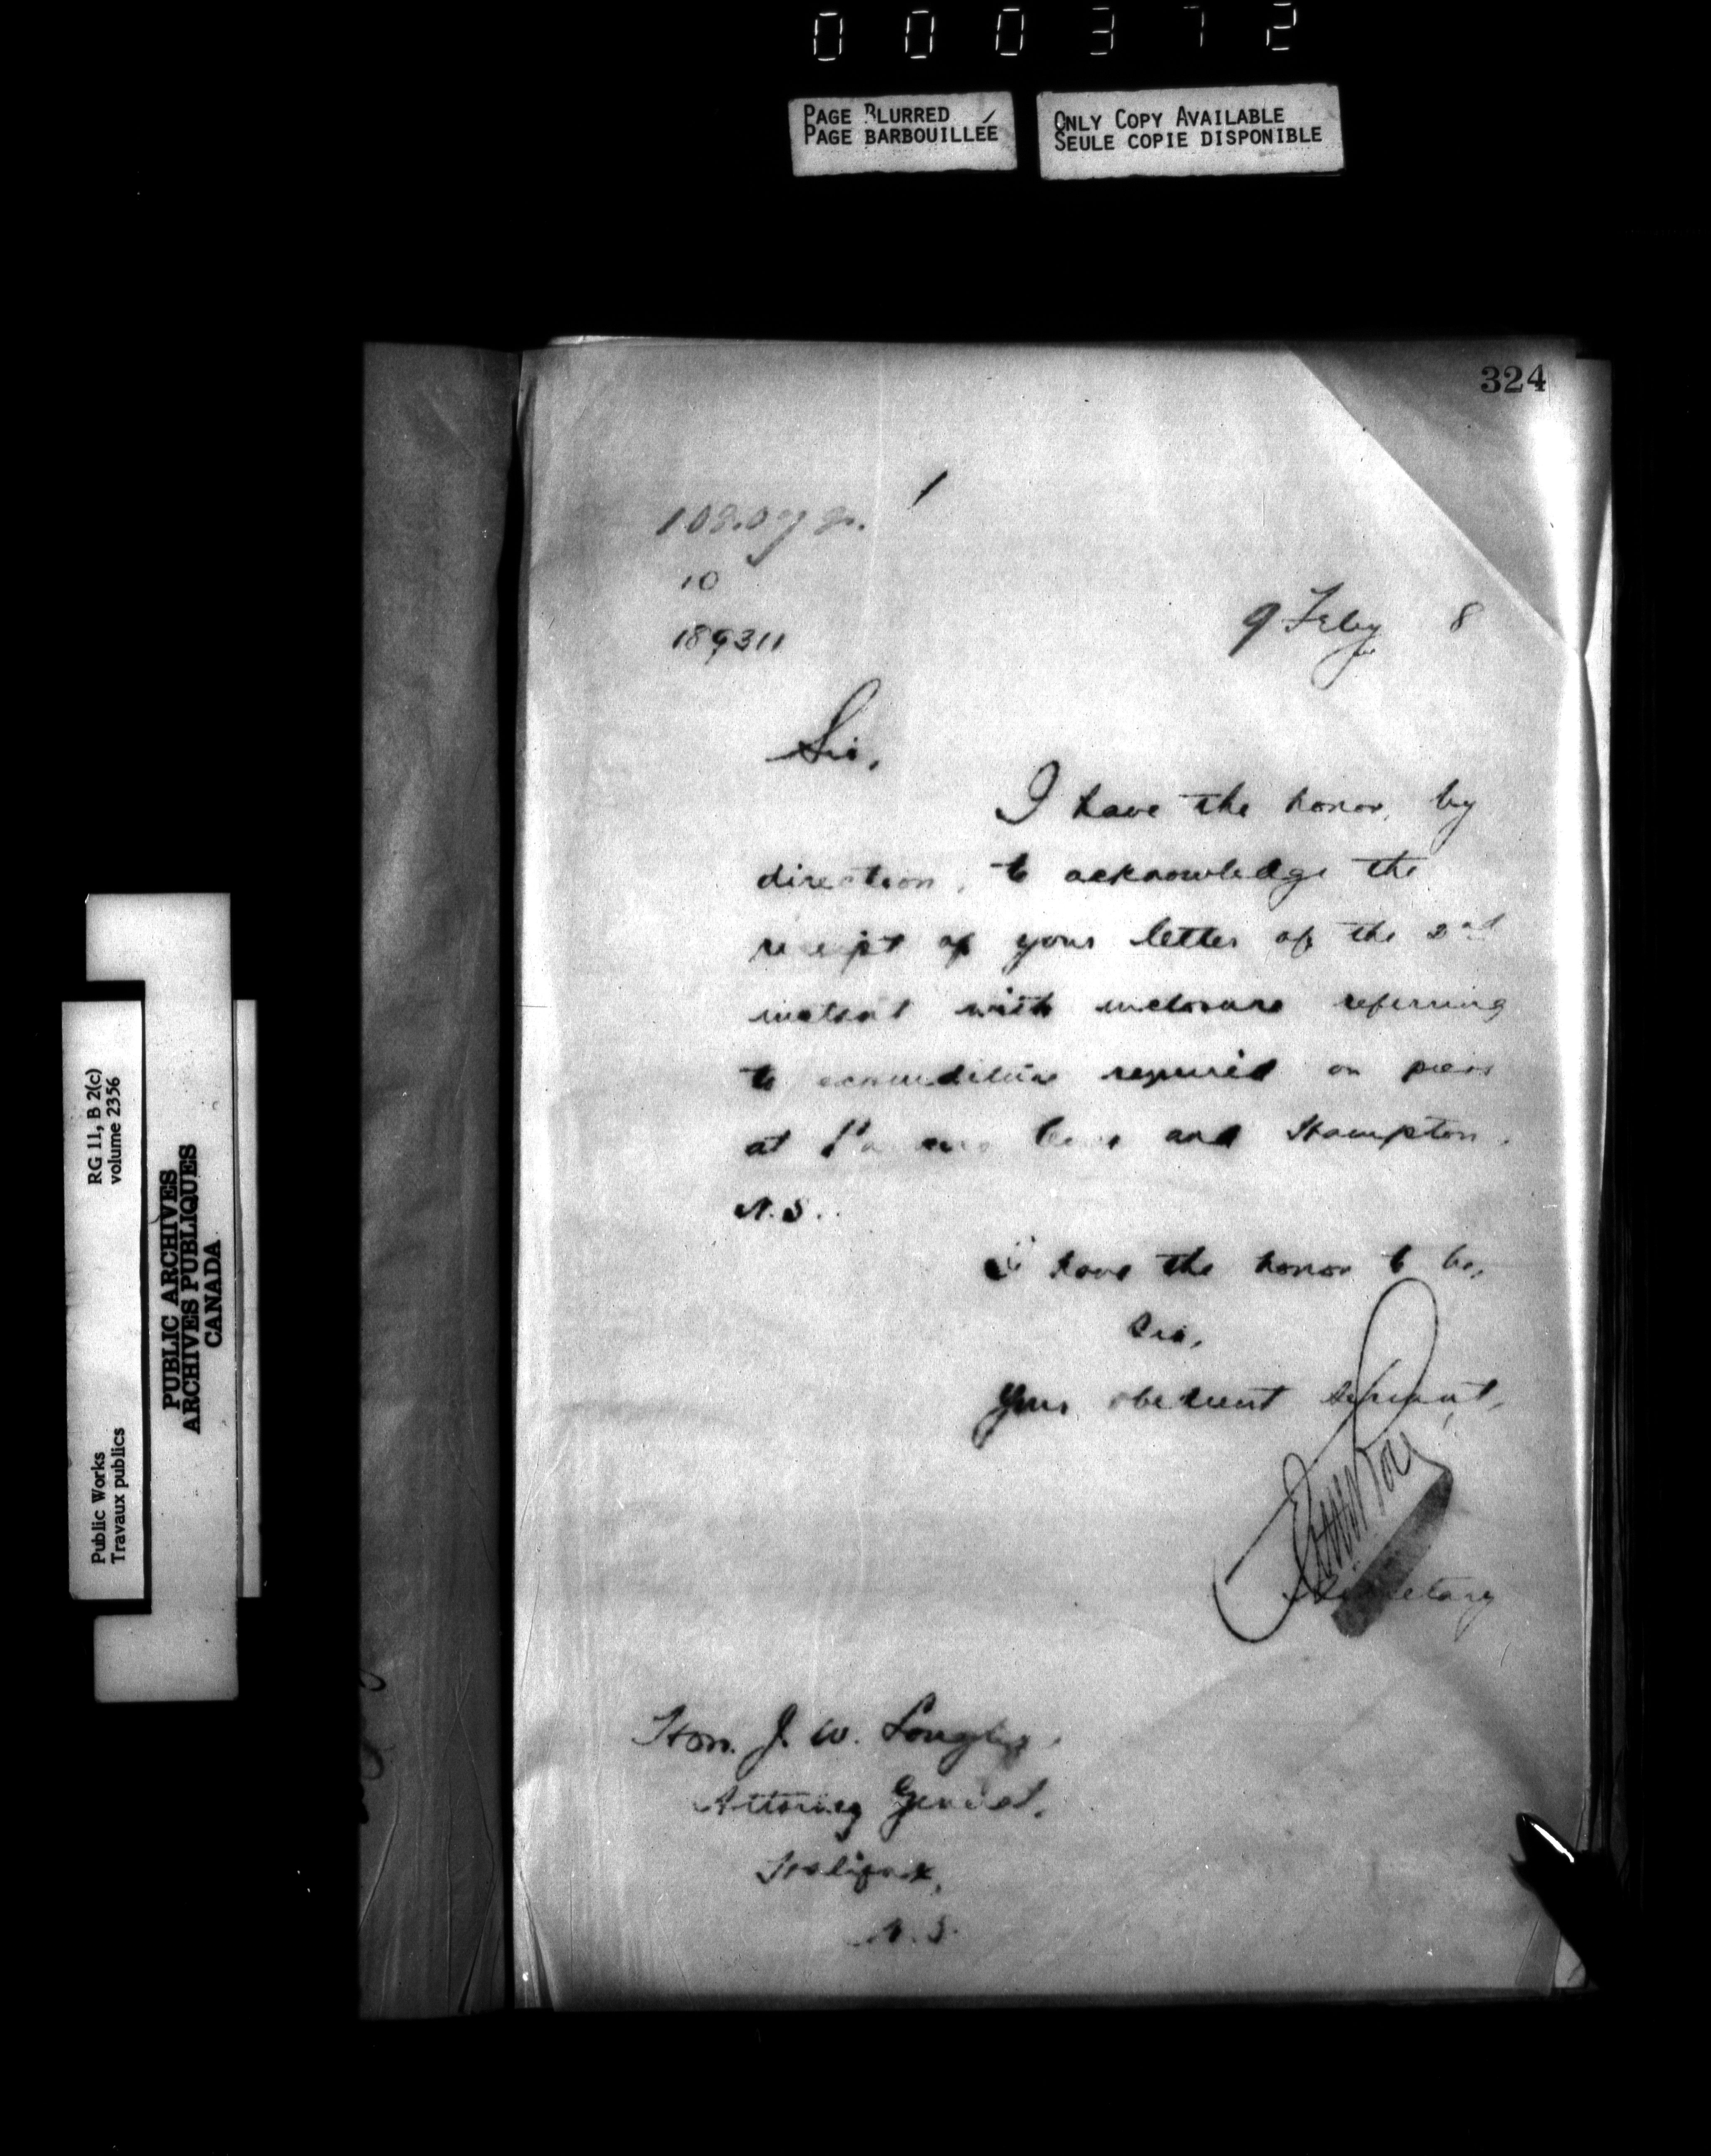 000372
PAGE BLURRED
PAGE BARBOUILLÉE
ONLY COPY AVAILABLE
SEULE COPIE DISPONIBLE
324
10
189311
9 Feby 8
Sir,
I have the honor, by
direction, to acknowledge the
receipt of your letter of the 2nd
instant with inclosure referring
to expenditure required on piers
at and Hampton,
N.S..
I have the honor to be,
Sir,
Your obedient servant,
Secretary
Hon. J. W. Longley,
Attorney General,
Halifax,
N.S.
RG 11, B 2(c)
volume 2356
PUBLIC ARCHIVES
ARCHIVES PUBLIQUES
CANADA
Public Works
Travaux publics